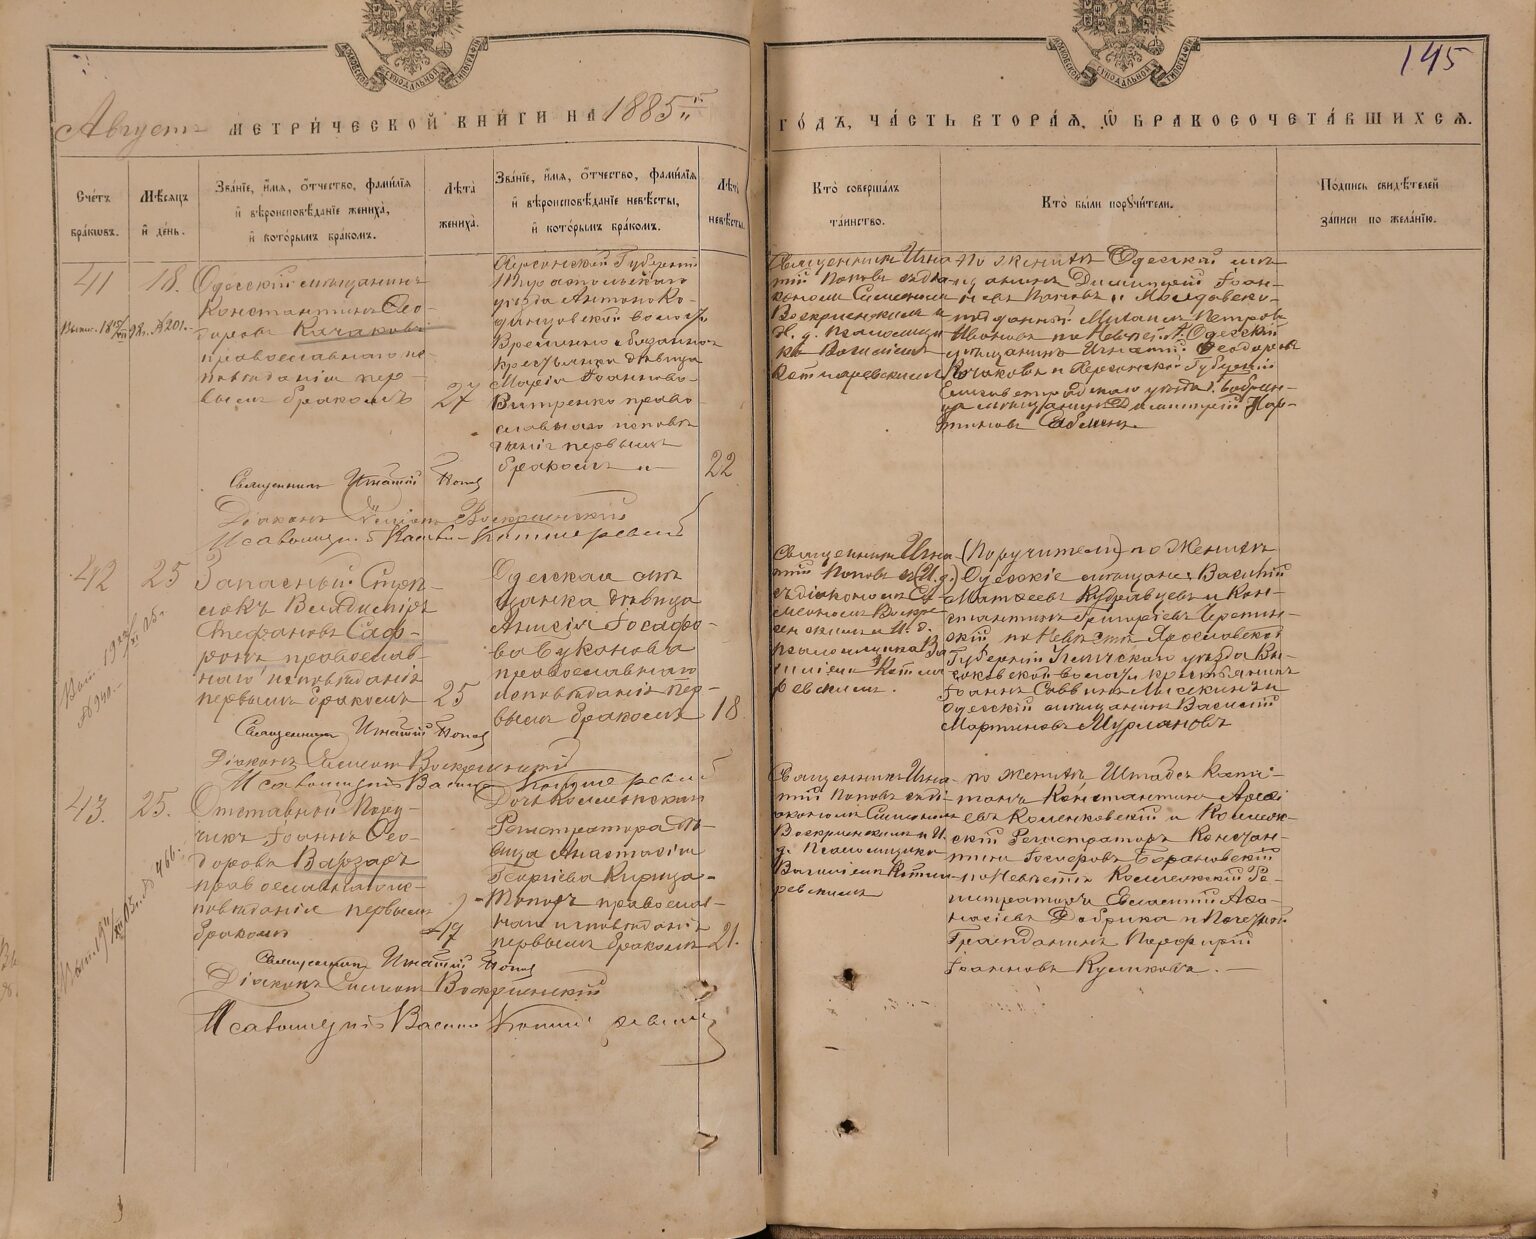 МОСКОВСКОЙ СѴНОДАЛЬНОЙ ТИПОГРАФІИ
МОСКОВСКОЙ СѴНОДАЛЬНОЙ ТИПОГРАФІИ
145
Августъ МЕТРИ́ЧЕСКОЙ КНИ́ГИ НА 1885й
ГО́ДЪ, ЧА́СТЬ ВТОРА́Я, Ѡ҆ БРАКОСОЧЕТА́ВШИХСЯ.
Сче́тъ бра́кѡвъ.
Мѣ́сяцъ и҆ де́нь.
Зва́нїе, и҆́мя, ѻ҆́тчество, фами́лїя
и҆ вѣроисповѣ́данїе жениха̀,
и҆ кото́рымъ бра́комъ.
Лѣта̀ жениха̀.
Зва́нїе, и҆́мя, ѻ҆́тчество, фами́лїя
и҆ вѣроисповѣ́данїе невѣ́сты,
и҆ кото́рымъ бра́комъ.
Лѣта̀ невѣ́сты.
Кто̀ соверша́лъ
та́инство.
Кто̀ бы́ли порꙋчи́тели.
По́дпись свидѣ́телей
за́писи по жела́нїю.
41
18.
Одесскій мѣщанинъ
Константинъ Ѳео-
доровъ Качаковъ
православнаго ис-
повѣданія пер-
вымъ бракомъ
27
Херсонской Губерніи
Тираспольскаго
уѣзда Антоно Ко-
динцовской волости
Временно обязанная
крестьянка дѣвица
Марія Іоаннова
Витренко право-
славнаго исповѣ-
данія первымъ
бракомъ
22
Священникъ Игна-
тій Поповъ съ діа-
кономъ Симеономъ
Воскресенскимъ и
И. д. псаломщи-
ка Василіемъ
Котляревскимъ
по женихѣ Одесскій мѣ-
щанинъ Димитрій Іоан-
новъ Поповъ и Молдавско-
подданный Михаилъ Петровъ
Ивановъ по Невѣстѣ Одесскій
мѣщанинъ Игнатій Ѳеодоровъ
Качаковъ и Херсонской Губерніи
Елисаветградскаго уѣзда г. Бобрин-
ца мѣщанинъ Димитрій Мар-
тиновъ
№ 201.
Священникъ Игнатій Поповъ
Діаконъ Симеонъ Воскресенскій
Псаломщикъ Василій Котляревскій
42
25
Запасный Стрѣ-
локъ Владиміръ
Стефановъ Саф-
ронъ православ-
наго исповѣданія
первымъ бракомъ
25
Одесская мѣ-
щанка дѣвица
Анисія Іосафо-
ва Буханова
православнаго
исповѣданія пер-
вымъ бракомъ
18
Священникъ Игна-
тій Поповъ съ (И.д.)
съ діакономъ Си-
меономъ Воскре-
сенскимъ и И. д.
псаломщика Ва-
силіемъ Котля-
ревскимъ.
(Поручители) по Женихѣ
Одесскіе мѣщане Василій
Матѳеевъ Кудрявцевъ и Кон-
стантинъ Григорьевъ
по Невѣстѣ Ярославской
Губерніи уѣзда
волости крестьянинъ
Іоаннъ Саввинъ Мискинъ и
Одесскій мѣщанинъ Василій
Мартиновъ Мурлановъ
Священникъ Игнатій Поповъ
Діаконъ Симеонъ Воскресенскій
Псаломщикъ Василій Котляревскій
43.
25.
Отставной Пору-
чикъ Іоаннъ Ѳео-
доровъ Варзаръ
православнаго ис-
повѣданія первымъ
бракомъ
Дочь Коллежскаго
Регистратора дѣ-
вица Анастасія
Георгіева Кирица-
Топоръ православ-
наго исповѣданія
первымъ бракомъ
21.
Священникъ Игна-
тій Поповъ съ ді-
акономъ Симеономъ
Воскресенскимъ и И.
д. Псаломщика
Василіемъ Котля-
ревскимъ
по женихѣ Штабсъ Капи-
танъ Константинъ
евъ Коленковскій и Коллеж-
скій Регистраторъ Констан-
тинъ Барановскій
по Невѣстѣ Коллежскій Ре-
гистраторъ Евлампій Аѳа-
насіевъ Добрика и Почетный
Гражданинъ Порфирій
Іоанновъ Куликовъ.
№ 466.
Священникъ Игнатій Поповъ
Діаконъ Симеонъ Воскресенскій
Псаломщикъ Василій Котляревскій